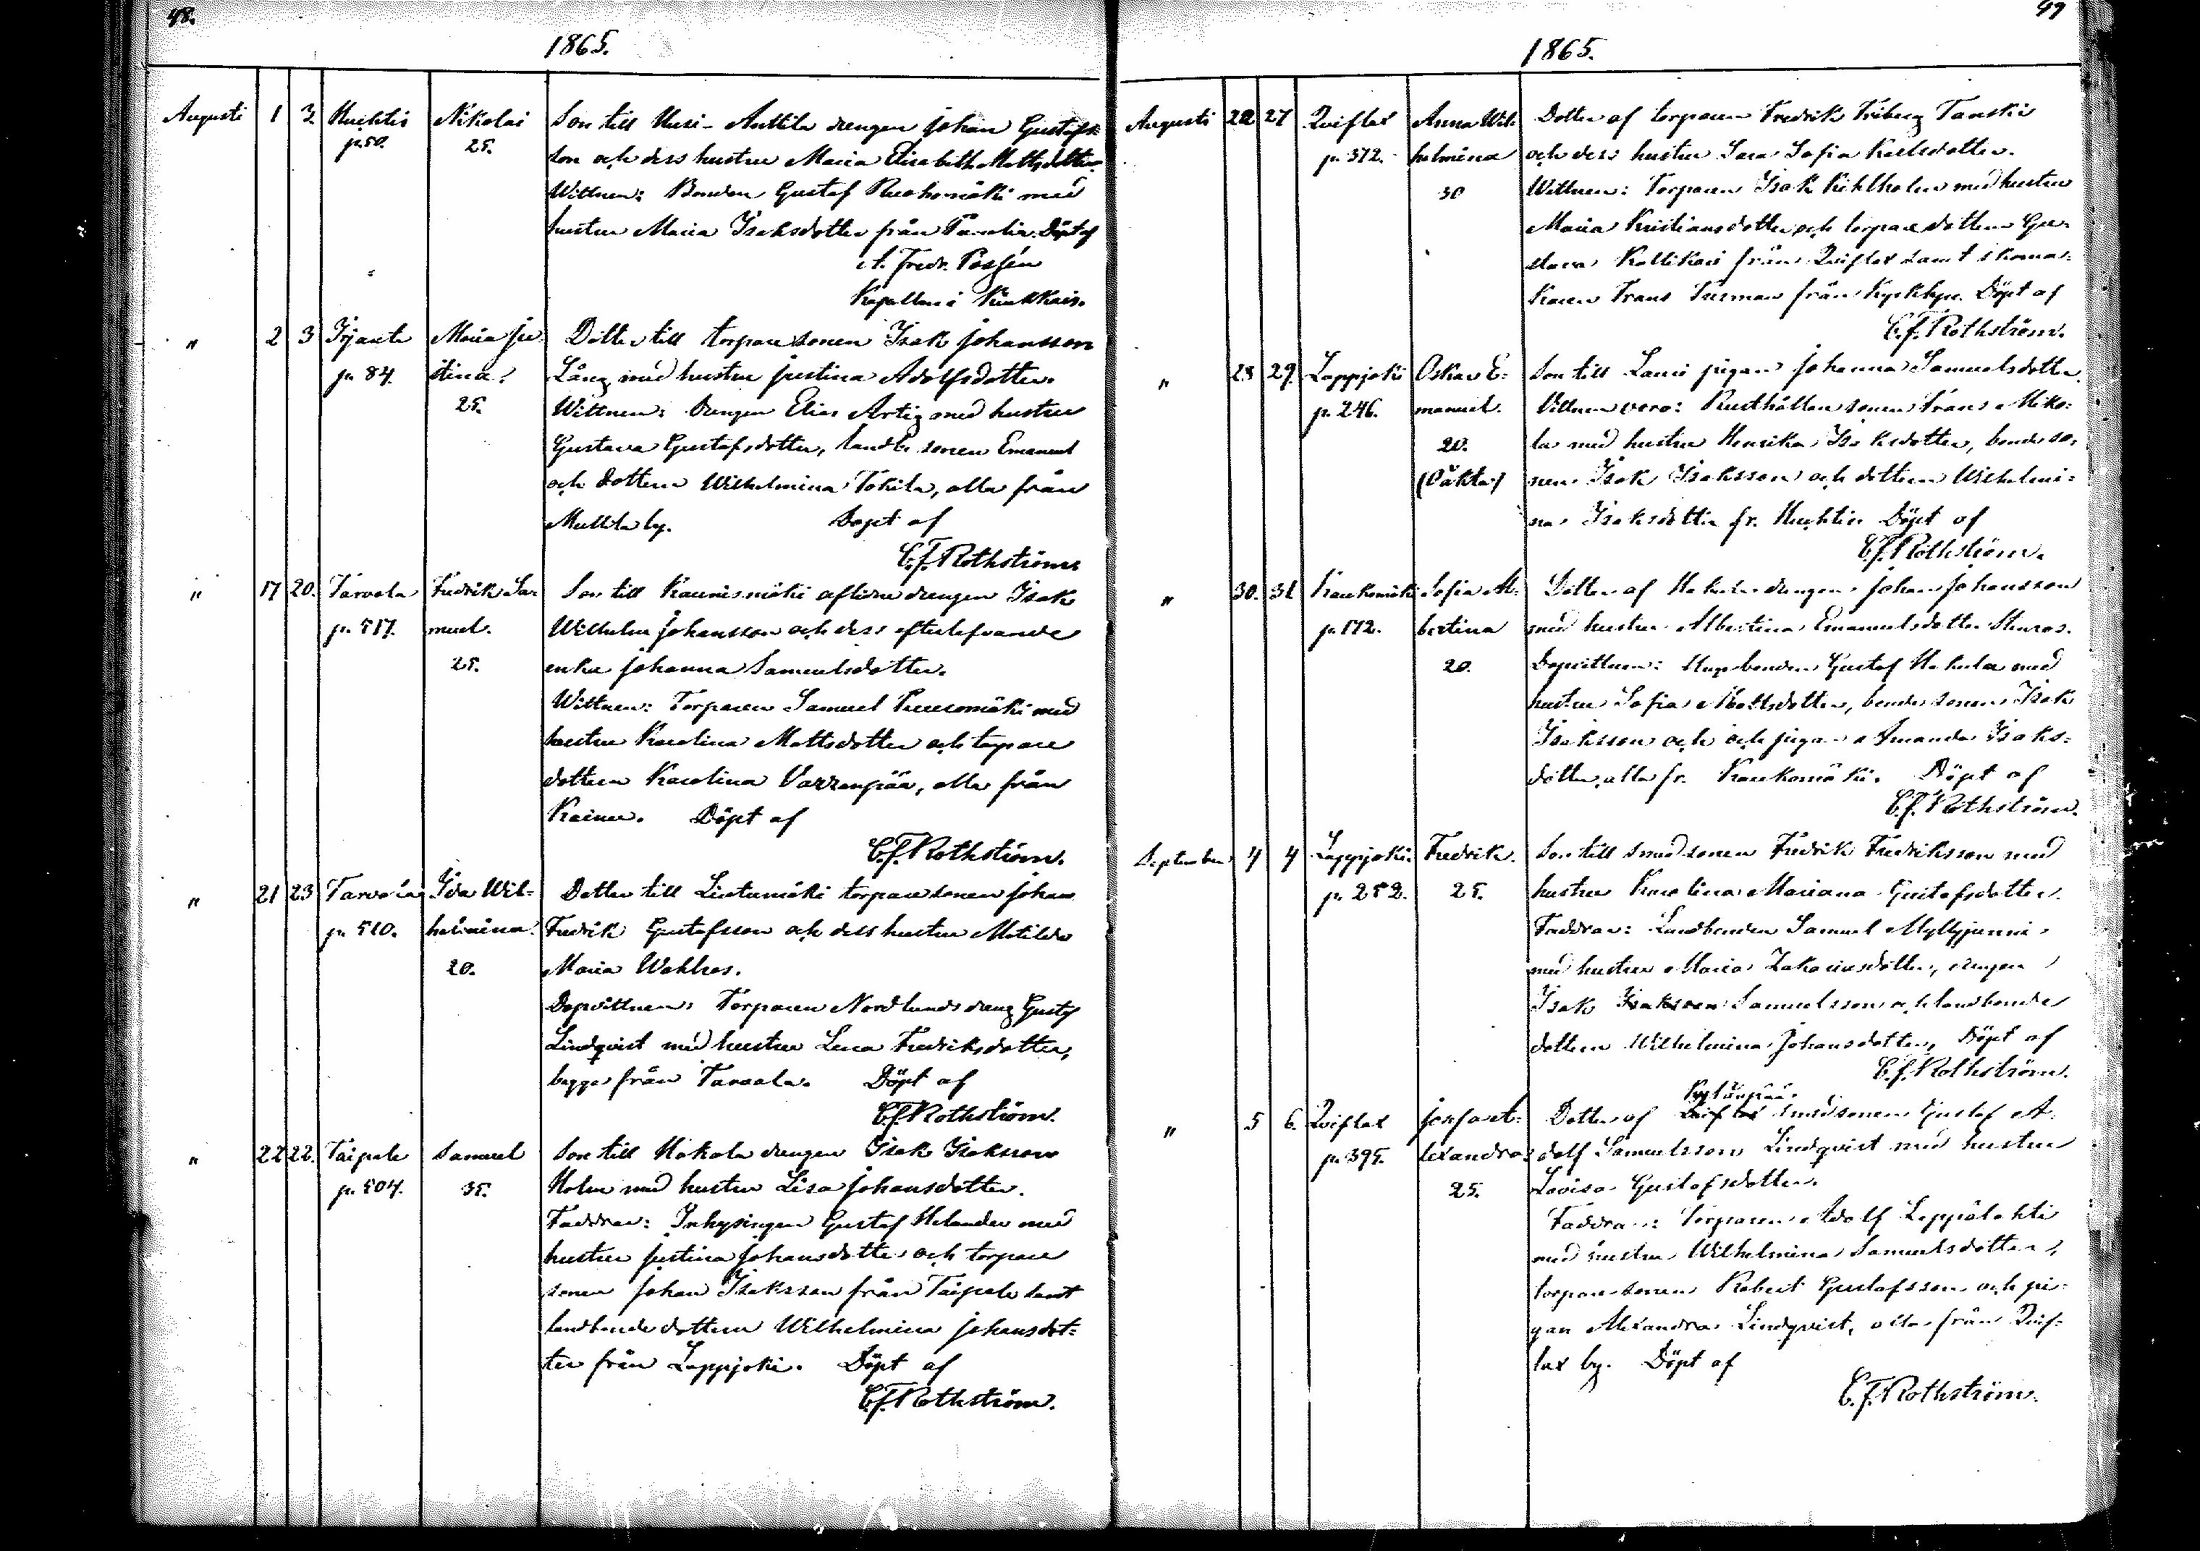 48.
1865.
Augusti 1 3. Huchtis Nikolai Son till Uusi-Anttila drengen Johan Gustafs-
p. 50. 25. son och dess hustru Maria Elisabeth Mattsdotter.
Wittnen: Bonden Gustaf Ruohomäki med
hustru Maria Isaksdotter från Panelia. Döpt af
Fredr. Possén
Kapellan i Kiukkais.
" 2 3 Irjante Maria Ju- Dotter till torparesonen Isak Johansson
p. 84. stina. Lång med hustru Justina Adolfsdotter.
25. Wittnen: Drengen Elias Artig med hustru
Gustava Gustafsdotter, landb. sonen Emanuel
och dottern Wilhelmina Tokila, alla från
Mullila by. Döpt af
C.f. Rothström
" 17 20. Tarvola Fredrik Sa- Son till Kaunismäki aflidne drengen Isak
p. 517. muel. Wilhelm Johansson och dess efterlefvande
25. enka Johanna Samuelsdotter.
Wittnen: Torparen Samuel med
hustru Karolina Mattsdotter och torpare
dottern Karolina Varrenpää, alla från
Kainu. Döpt af
C.f. Rothström.
" 21 23 Tarvola Ida Wil- Dotter till Lintumäki torparesonen Johan
p. 510. helmina. Fredrik Gustafsson och dess hustru Matilda
20. Maria Wahlros.
Dopvittnen: Torparen Nordlunds dreng Gustaf
Lindqvist med hustru Lena Fredriksdotter,
bägge från Tarvola. Döpt af
C.f. Rothström.
" 22 22. Taipale Samuel Son till Kokola drengen Isak Isaksson
p. 504. 35. Holm med hustru Lisa Johansdotter.
Faddrar: Inhysingen Gustaf Helander med
hustru Justina Johansdotter och torpare
sonen Johan Isaksson från Taipale samt
landbondedottern Wilhelmina Johansdot-
ter från Lappjoki. Döpt af
C.f. Rothström.
49
1865.
Augusti 22 27 Qviflax Anna Wil- Dotter af torparen Fredrik Friberg Tanskis
p. 372. helmina och dess hustru Sara Sofia Karlsdotter.
30 Wittnen: Torparen Isak Kihlholm med hustru
Maria Kristiansdotter och torparedottern Gu-
stava Kallikari från Qviflax samt skoma-
karen Frans Surman från Kyrkbyn. Döpt af
C.f. Rothström.
" 28 29. Lappjoki Oskar E- Son till Lauri pigan Johanna Samuelsdotter.
p. 246. manuel. Vittnen voro: Rusthållaresonen Frans Miko-
20. la med hustru Henrika Isaksdotter, bondeso-
(Oäkta) nen Isak Isaksson och dottern Wilhelmi-
na Isaksdotter fr. Huchtis Döpt af
C.f. Rothström.
" 30. 31. Kaukomäki Sofia Al- Dotter af Hakula drengen Johan Johansson
p. 172. bertina med hustru Albertina Emanuelsdotter Sturos.
20. Dopvittnen: Gustaf Hakula med
hustru Sofia Mattsdotter, bondesonen Isak
Isaksson och och pigan Amanda Isaks-
dotter, alla fr. Kaukomäki. Döpt af
C.f. Rothström.
September 4 4 Lappjoki. Fredrik. Son till smedsonen Fredrik Fredriksson med
p. 252. 25. hustru Karolina Mariana Gustafsdotter.
Faddrar: Landbonden Samuel Myllyjunni
med hustru Maria Zakariasdotter, drengen
Isak Isaksson Samuelsson och landbonde
dottern Wilhelmina Johansdotter, Döpt af
C.f. Rothström.
Kyttänpää.
" 5 6. Qviflax Josefa A- Dotter af Qviflax smedsonen Gustaf A-
p. 395. lexandra dolf Samuelsson Lindqvist med hustru
25. Lovisa Gustafsdotter.
Faddrar: Torparen Adolf Leppälahti
med hustru Wilhelmina Samuelsdotter,
torparesonen Robert Gustafsson och pi-
gan Alexandra Lindqvist, alla från Qvif-
lax by. Döpt af
C.f. Rothström.